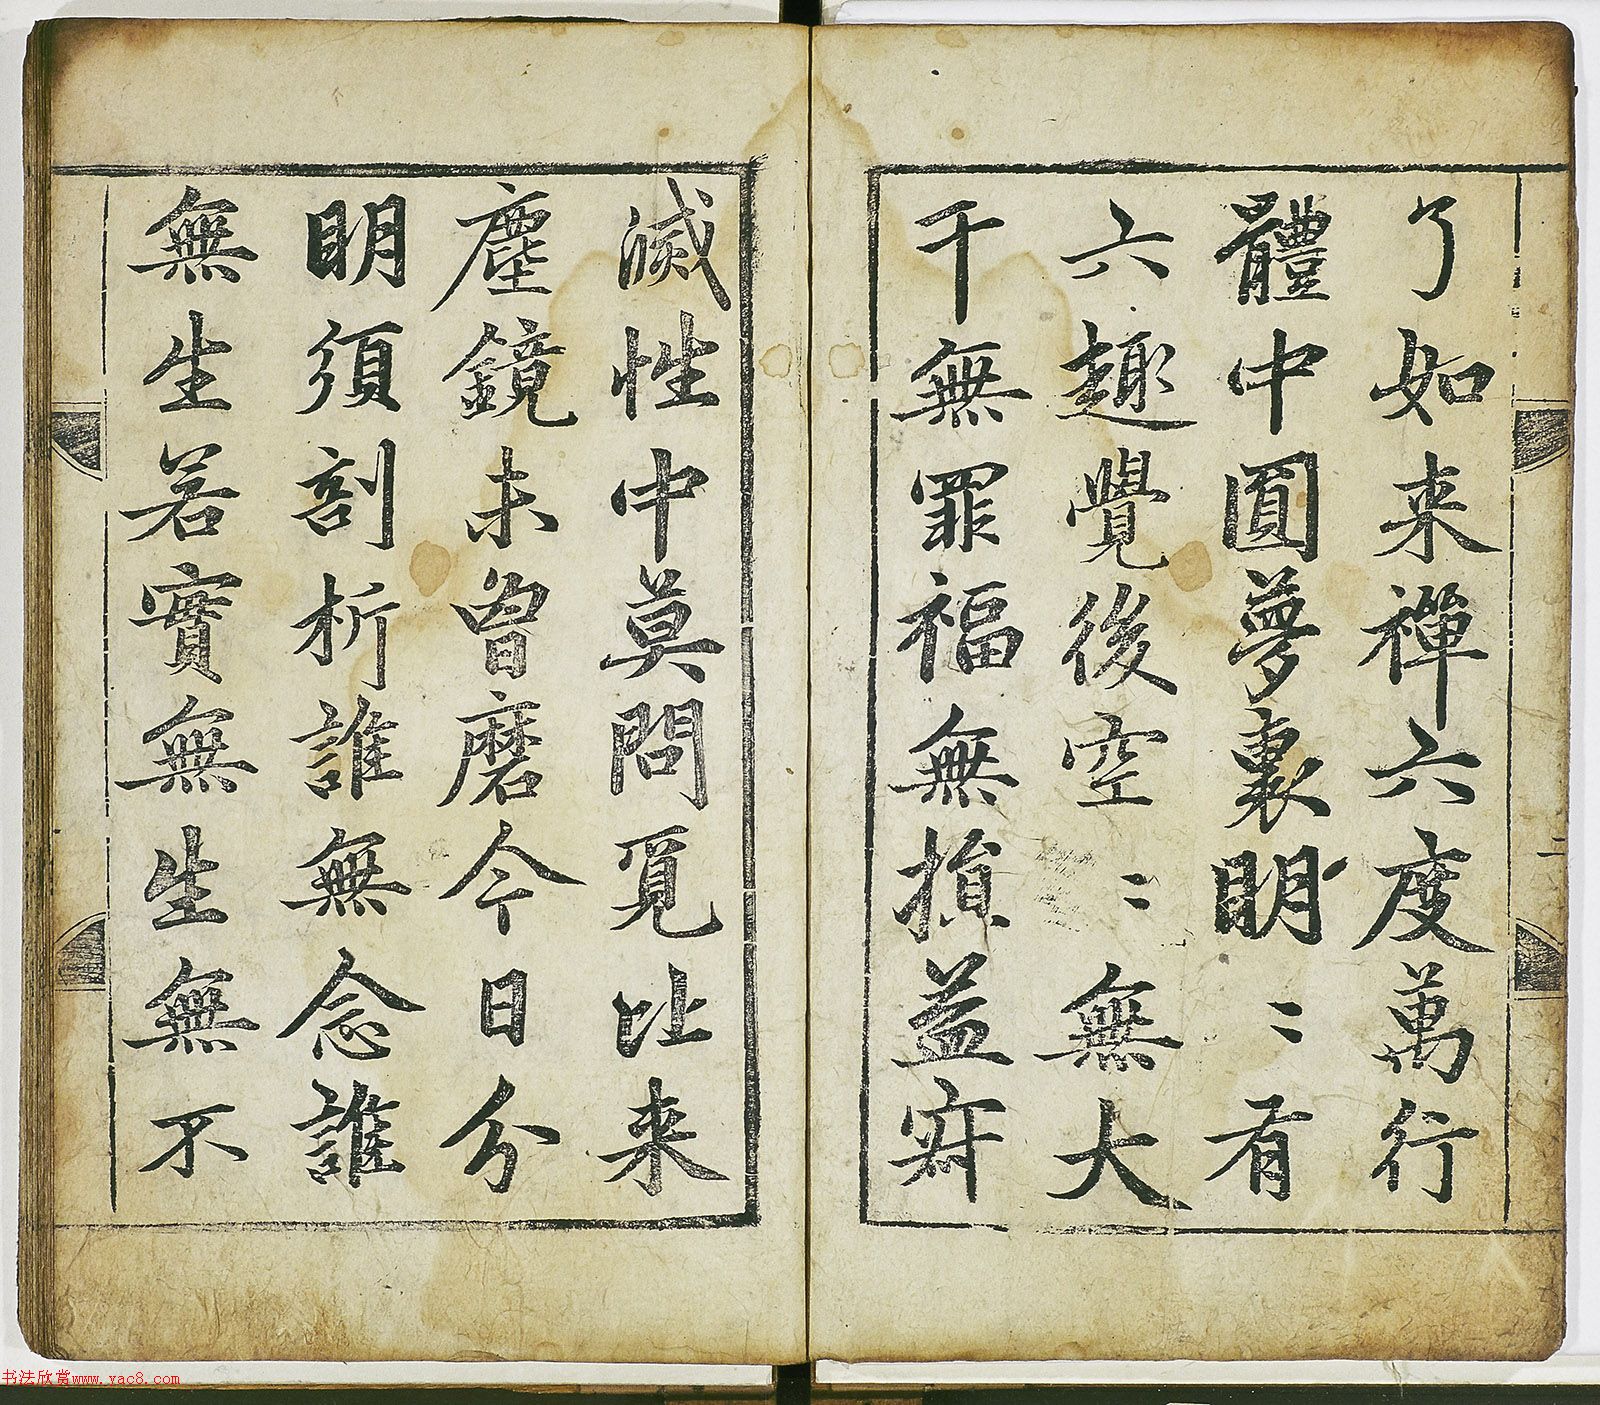 了如来禪六度萬行
體中圓夢裏明〻有
六趣覺後空〻無大
千無罪福無損益寂
滅性中莫問覓比来
塵鏡未曾磨今日分
明須剖析誰無念誰
無生若實無生無不
二
书法欣赏www.yac8.com